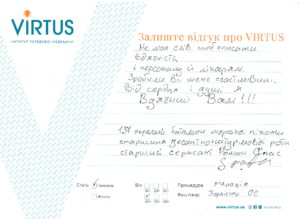 VIRTUS
ІНСТИТУТ ПЕРЕДОВОЇ МЕДИЦИНИ
Залиште відгук про VIRTUS
Не маю слів щоб описати
вдячність
і персоналу і лікарям.
Зробили Ви мене щасливим.
Від серця і душі я
Вдячний Вам!!!
137 окремий батальон морської піхоти
старшина десантно-штурмової роти
старший сержант Роман
Стать
Чоловіча
Жіноча
Вік
Процедура операція
www.virtus.ua